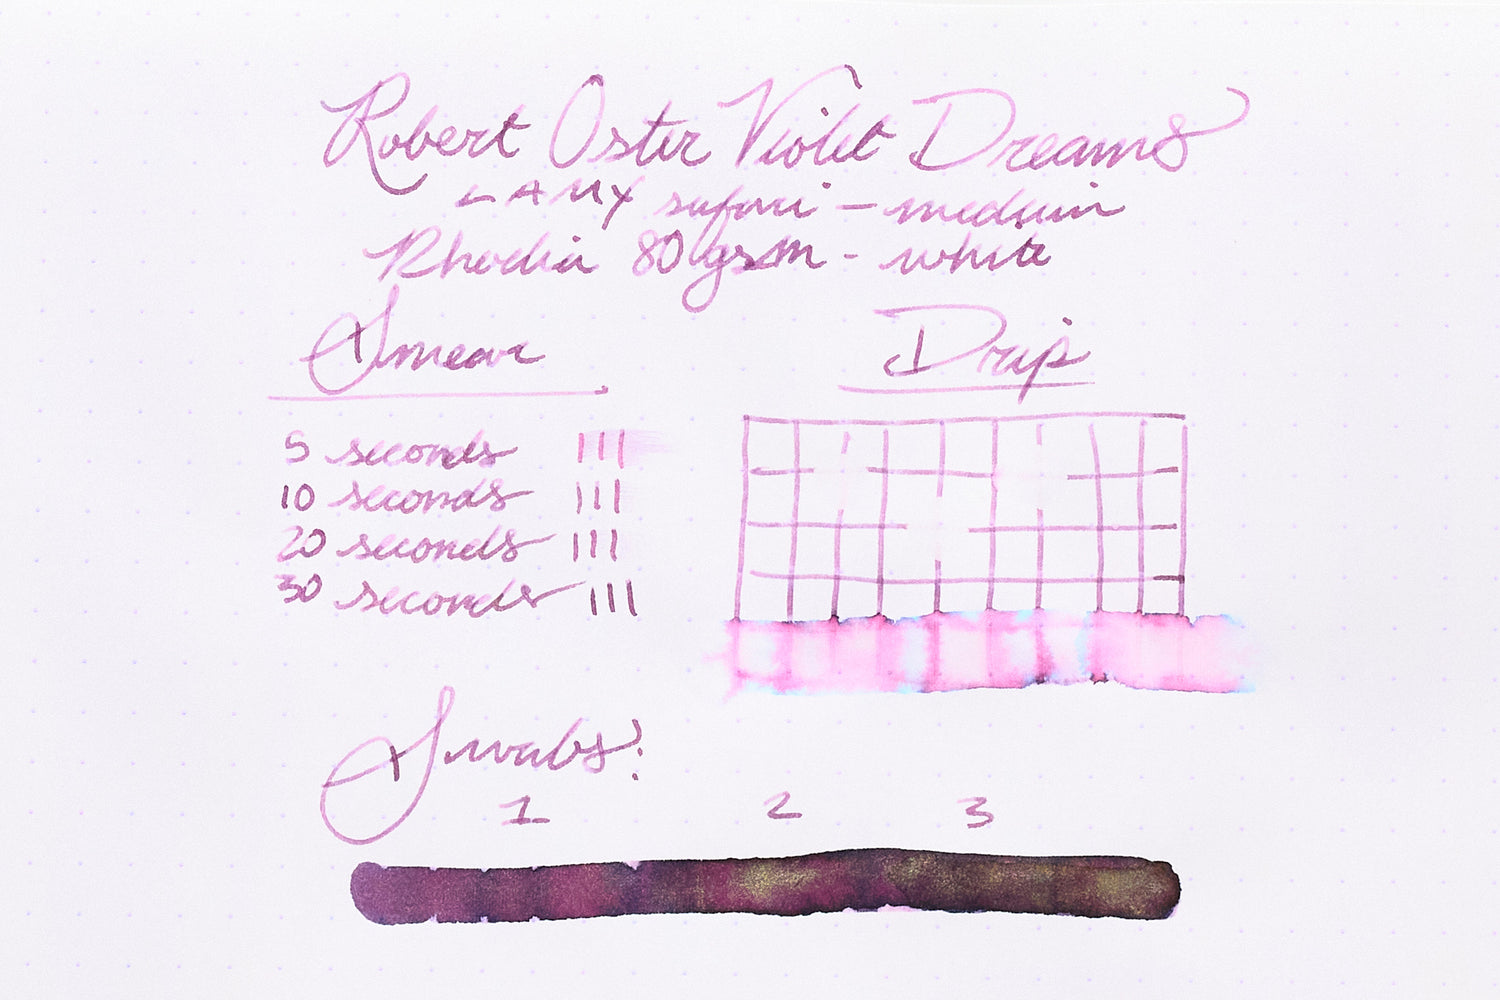 Robert Oster Violet Dreams
LAMY safari - medium
Rhodia 80 gsm - white
Smear
5 seconds
10 seconds
20 seconds
30 seconds
Drip
Swabs:
1 2 3